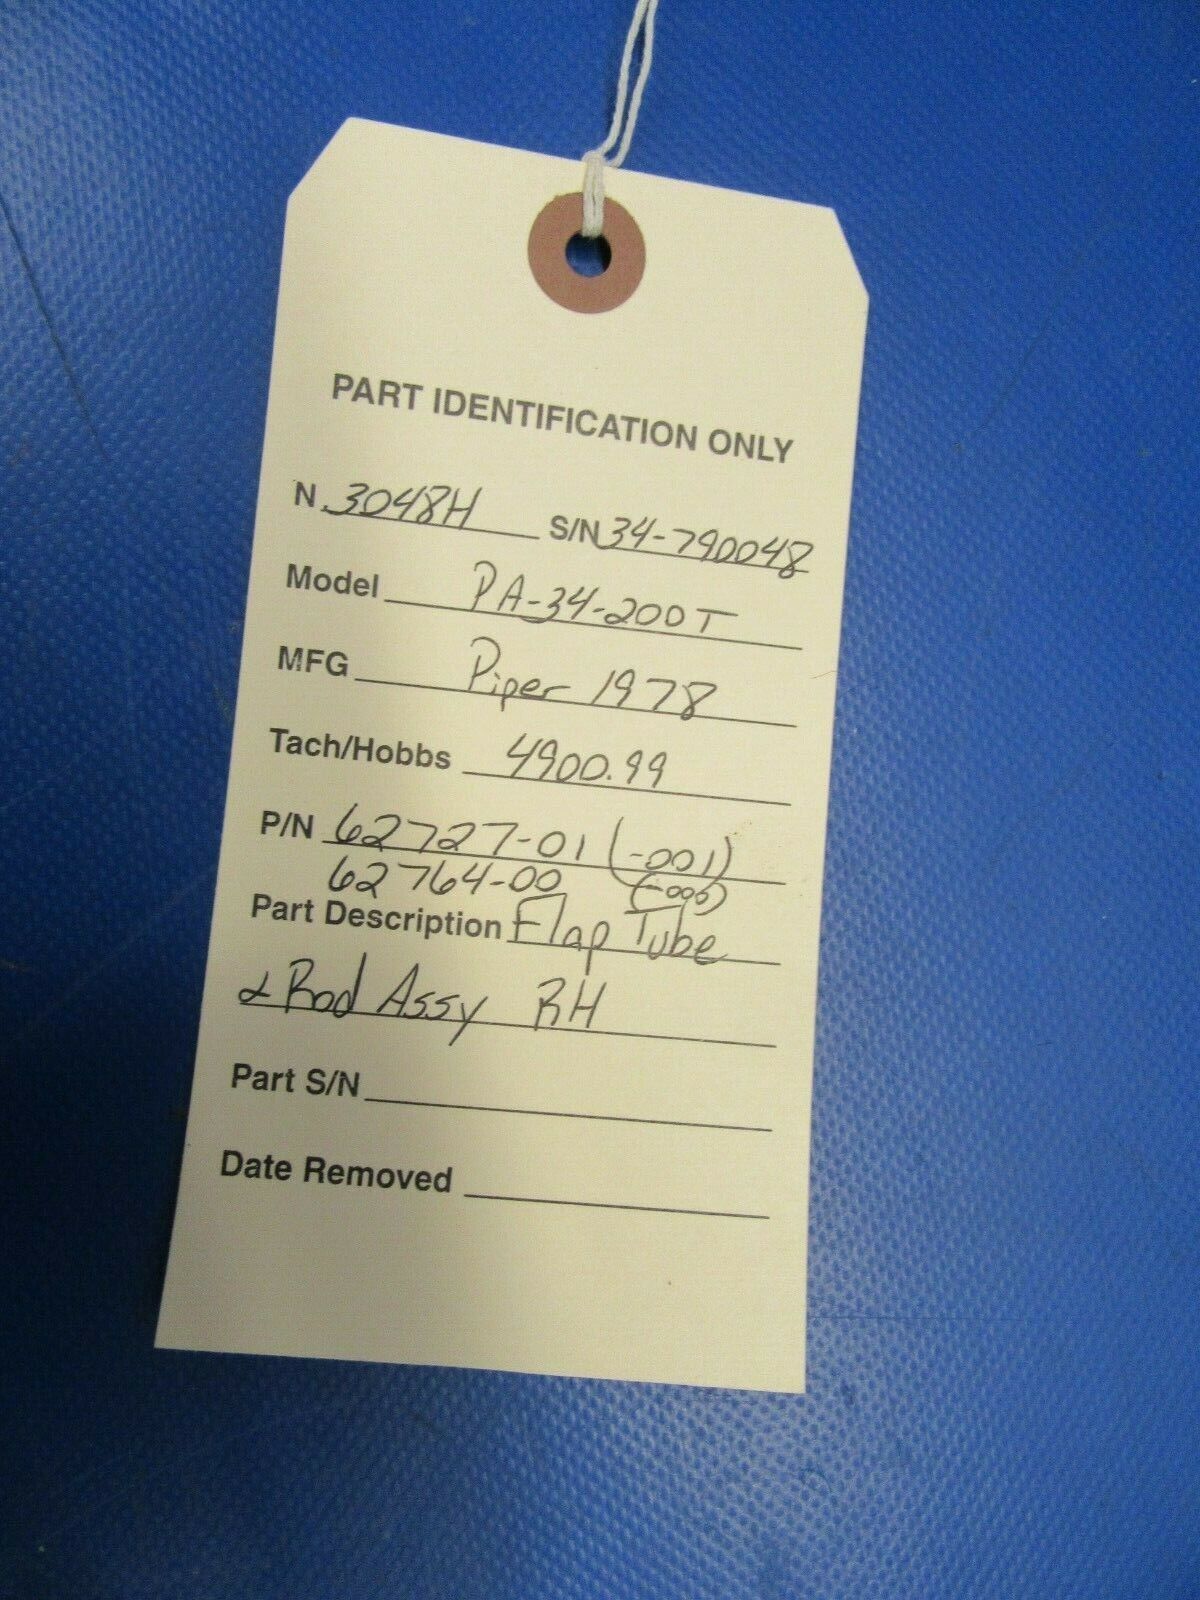 PART IDENTIFICATION ONLY
N 3048H S/N 34-790048
Model PA-34-200T
MFG Piper 1978
Tach/Hobbs 4900.99
P/N 62727-01 (-001)
62764-00 (-000)
Part Description Flap Tube
& Rod Assy RH
Part S/N
Date Removed